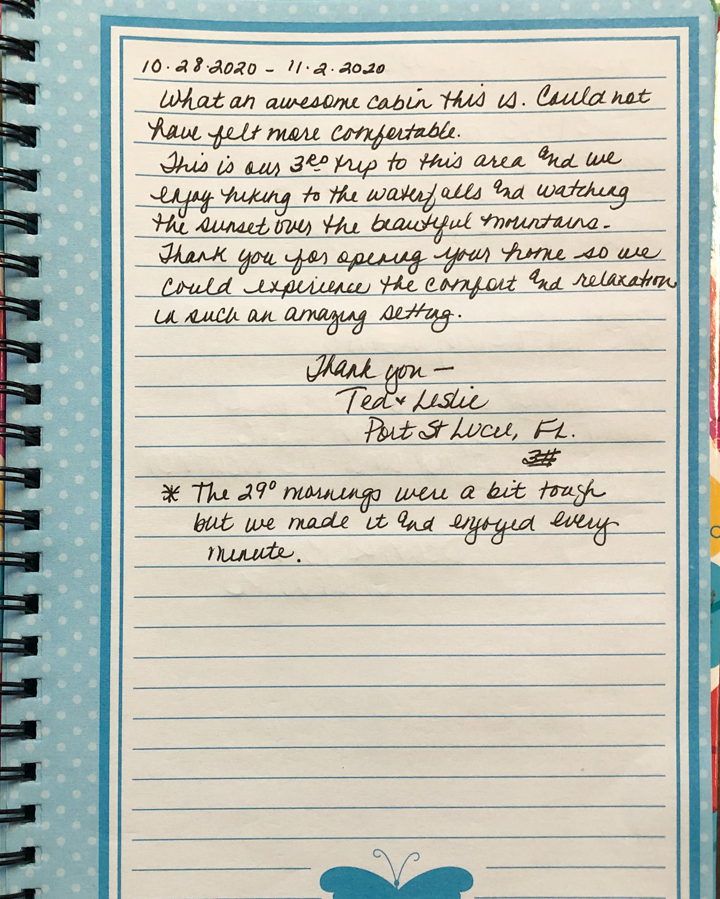 10.28.2020 - 11.2.2020
What an awesome cabin this is. Could not
have felt more comfortable.
This is our 3RD trip to this area and we
enjoy hiking to the waterfalls and watching
the sunset over the beautiful mountains.
Thank you for opening your home so we
could experience the comfort and relaxation
in such an amazing setting.
Thank you —
Ted & Leslie
Port St Lucie, FL.
* The 29° mornings were a bit tough
but we made it and enjoyed every
minute.